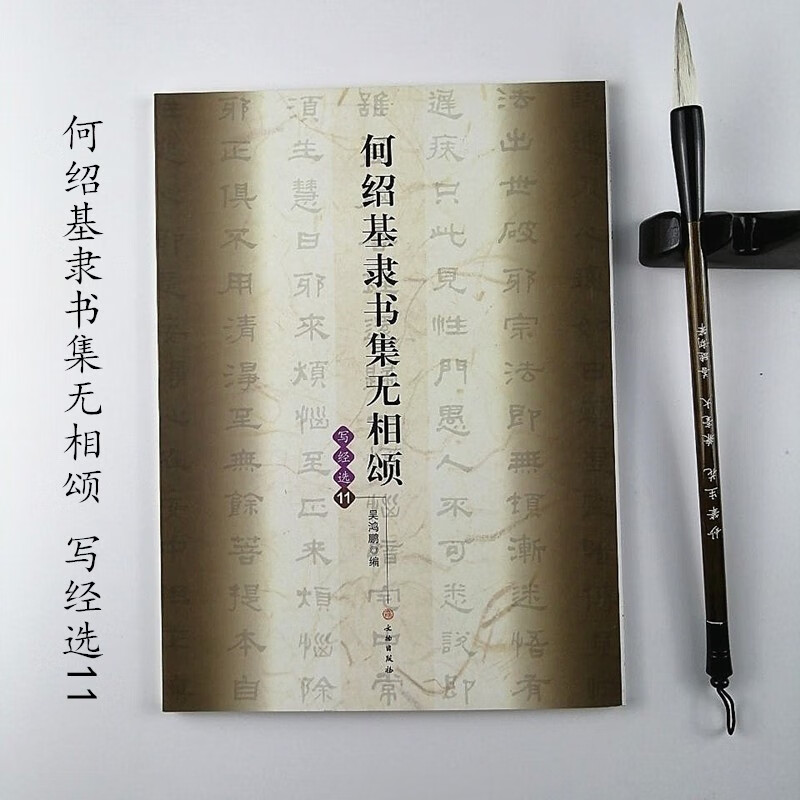 何绍基隶书集无相颂 写经选11
何绍基隶书集无相颂
写经选
11
吴鸿鹏 编
文物出版社
法出世破邪宗法即無頓漸迷悟有
遲疾只此見性門愚人不可悉說即
須生慧日邪來煩惱至正來煩惱除
邪正俱不用清淨至無餘菩提本自
妙筆生花 兼毫 大